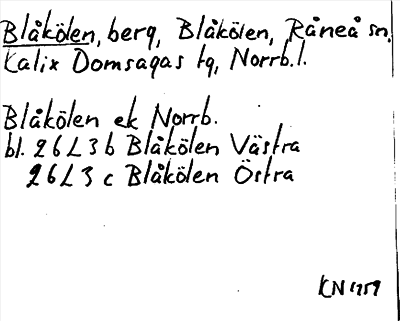 Blåkölen, berg, Blåkölen, Råneå sn,
Kalix Domsagas tg, Norrb.l.
Blåkölen ek Norrb.
bl. 26L3b Blåkölen Västra
26L3c Blåkölen Östra
KN 1959